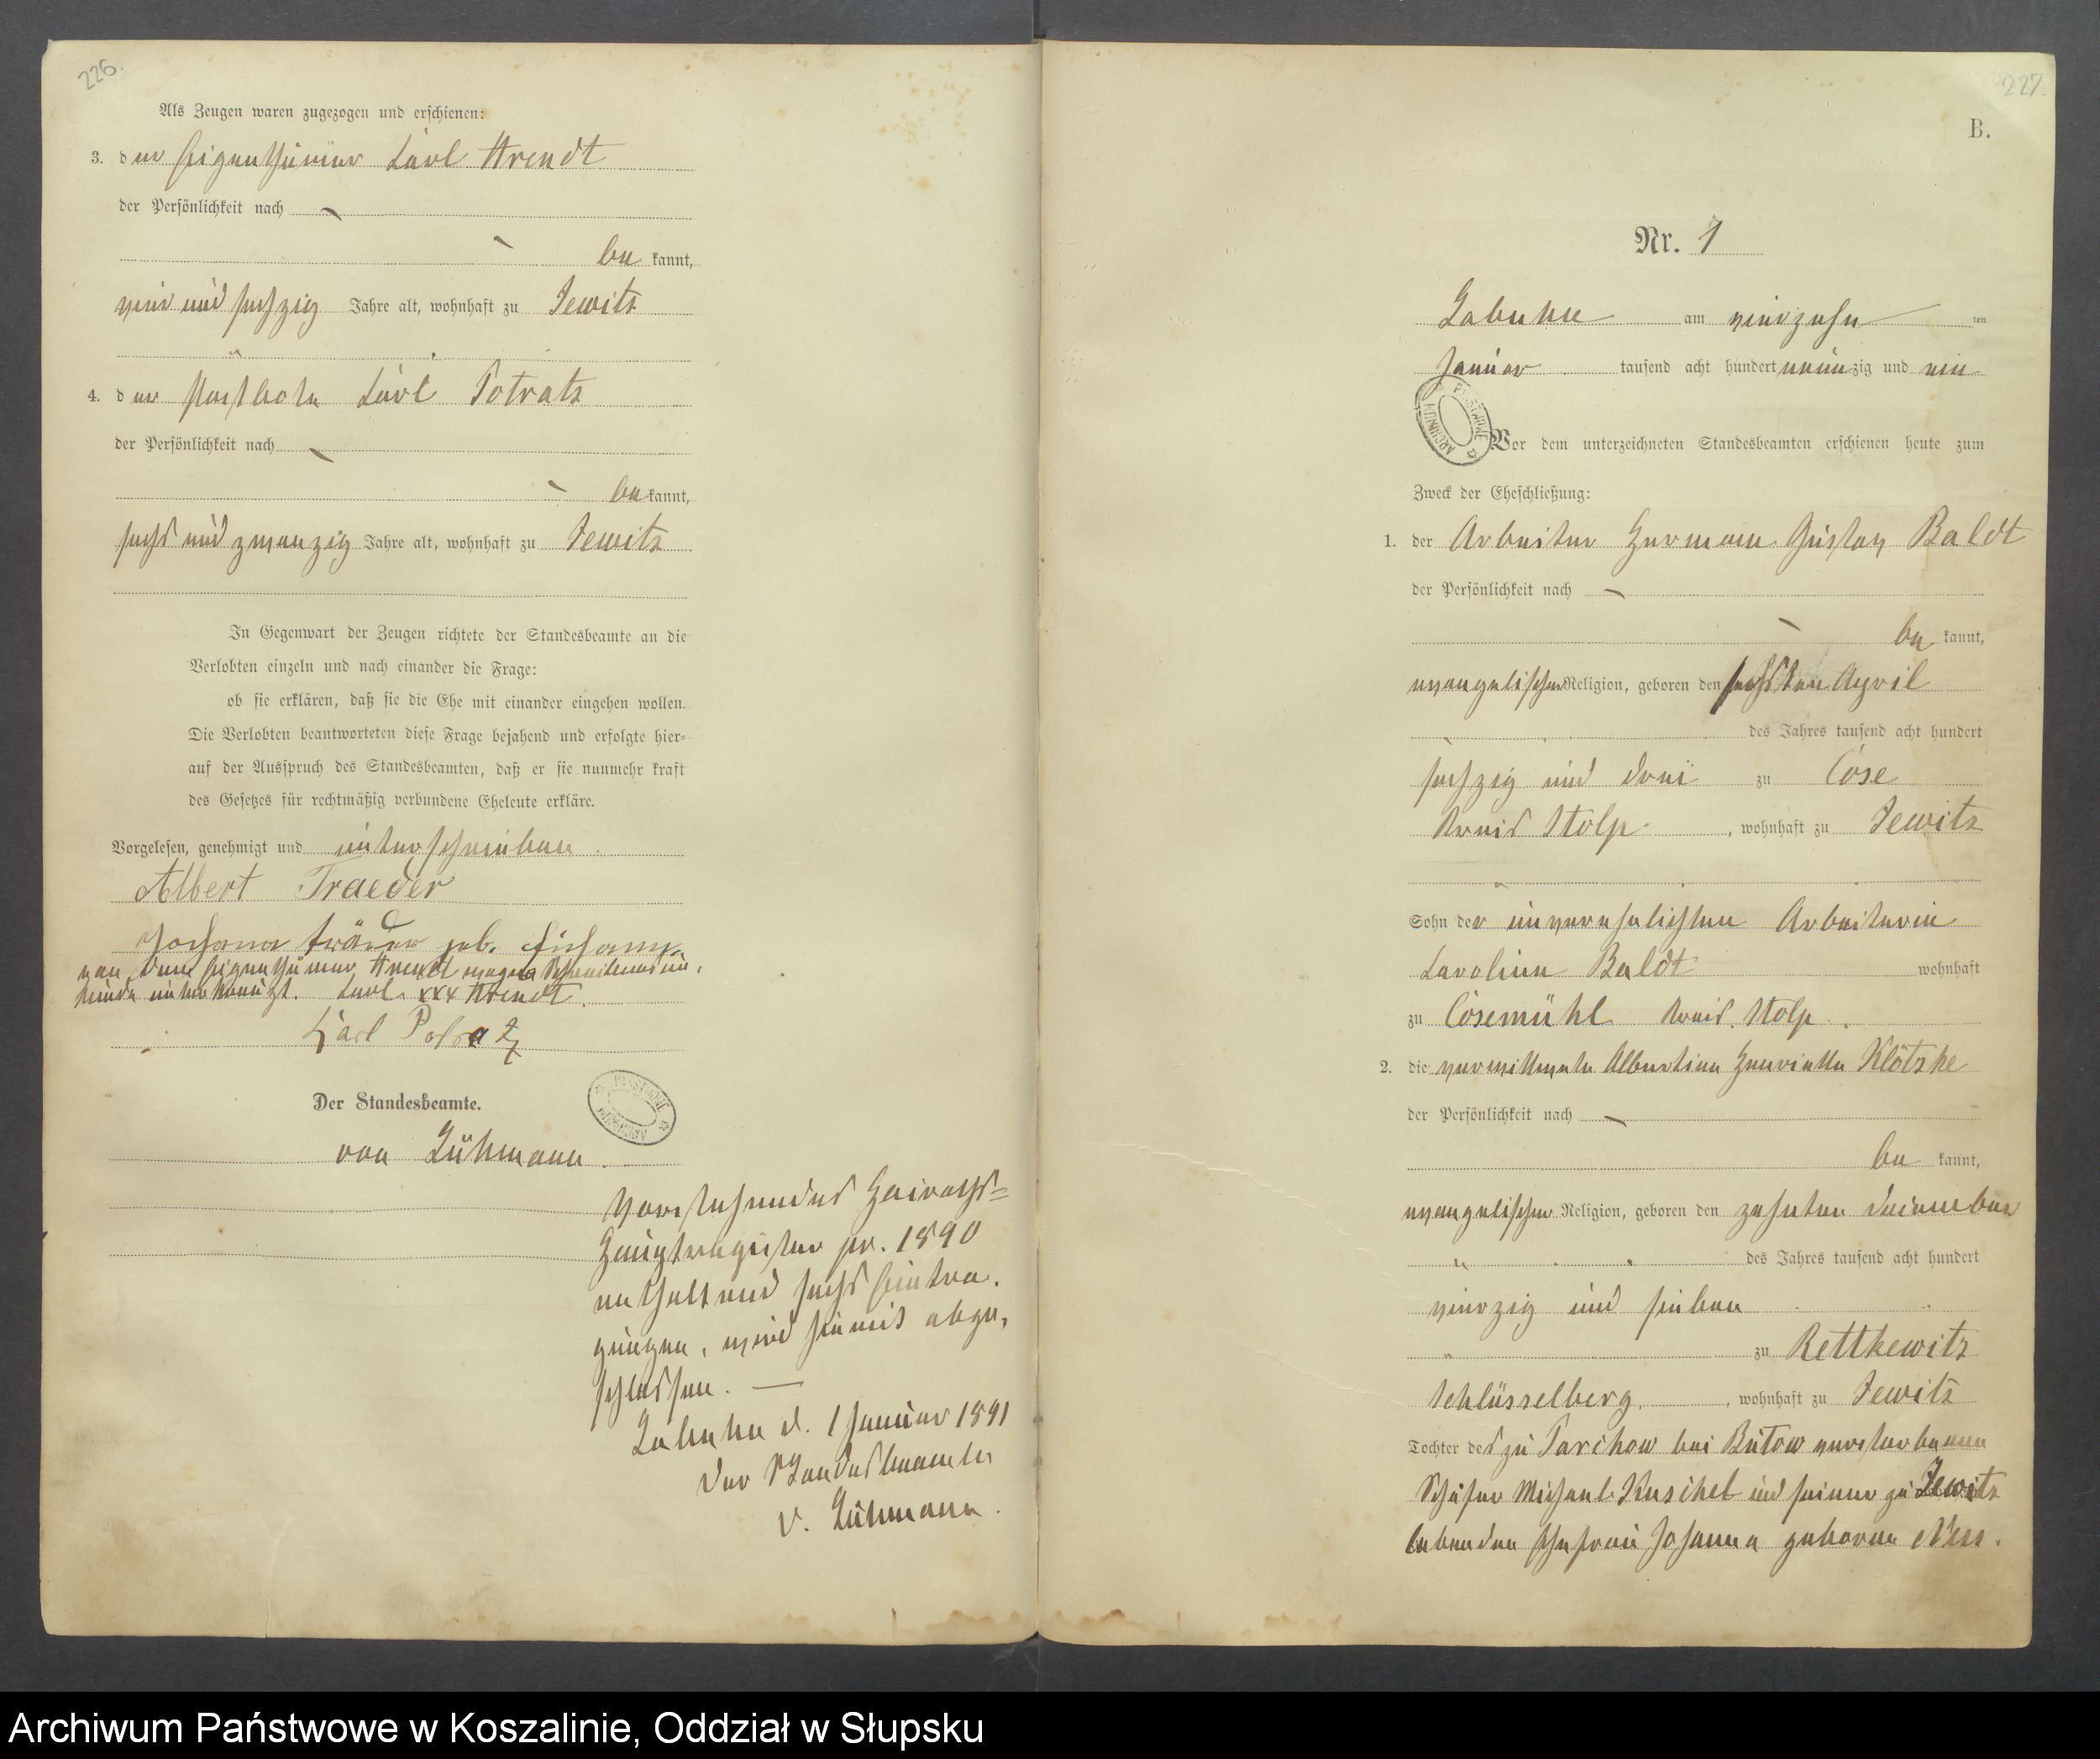 226.
Als Zeugen waren zugezogen und erschienen:
3. der Eigenthümer Karl Arendt
der Persönlichkeit nach
bekannt,
vier und sechzig Jahre alt, wohnhaft zu Jewitz
4. der Postbote Karl Potratz
der Persönlichkeit nach
bekannt,
sechs und zwanzig Jahre alt, wohnhaft zu Jewitz
In Gegenwart der Zeugen richtete der Standesbeamte an die
Verlobten einzeln und nach einander die Frage:
ob sie erklären, daß sie die Ehe mit einander eingehen wollen.
Die Verlobten beantworteten diese Frage bejahend und erfolgte hier-
auf der Ausspruch des Standesbeamten, daß er sie nunmehr kraft
des Gesetzes für rechtmäßig verbundene Eheleute erkläre.
Vorgelesen, genehmigt und unterschrieben
Albert Traeder
Johanna Träder geb.
von dem Eigenthümer Arendt wegen Schreibensun-
kunde unterkreuzt. Karl xxx Arendt.
Karl Potratz
Der Standesbeamte.
von Lühmann.
Vorstehendes Heiraths=
Hauptregister pr. 1890
enthaltend sechs Eintra-
gungen, wird hiermit abge-
schlossen. —
Labuhn d. 1 Januar 1891
Der Standesbeamte
v. Lühmann.
227.
B.
Nr. 1
Labuhn am vierzehnten
Januar tausend acht hundert neunzig und ein
Vor dem unterzeichneten Standesbeamten erschienen heute zum
Zweck der Eheschließung:
1. der Arbeiter Hermann Gustav Baldt
der Persönlichkeit nach
bekannt,
evangelischer Religion, geboren den sechsten April
des Jahres tausend acht hundert
sechzig und drei zu Cose
Kreis Stolp, wohnhaft zu Jewitz
Sohn der unverehelichten Arbeiterin
Karoline Baldt wohnhaft
zu Cosemühl Kreis Stolp.
2. die verwittwete Albertine Henriette Klötzke
der Persönlichkeit nach
bekannt,
evangelischer Religion, geboren den zehnten Dezember
des Jahres tausend acht hundert
vierzig und sieben
zu Rettkewitz
Schlüsselberg, wohnhaft zu Jewitz
Tochter des zu Parchow bei Bütow verstorbenen
Schäfer Michael Kuschel und seiner zu Jewitz
lebenden Ehefrau Johanna geborene Ness.
ARCHIWUM PAŃSTWOWE
Archiwum Państwowe w Koszalinie, Oddział w Słupsku